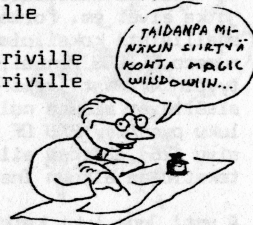 lle
riville
riville
TAIDANPA MI-
NÄKIN SIIRTYÄ
KOHTA MAGIC
WINDOWIIN...